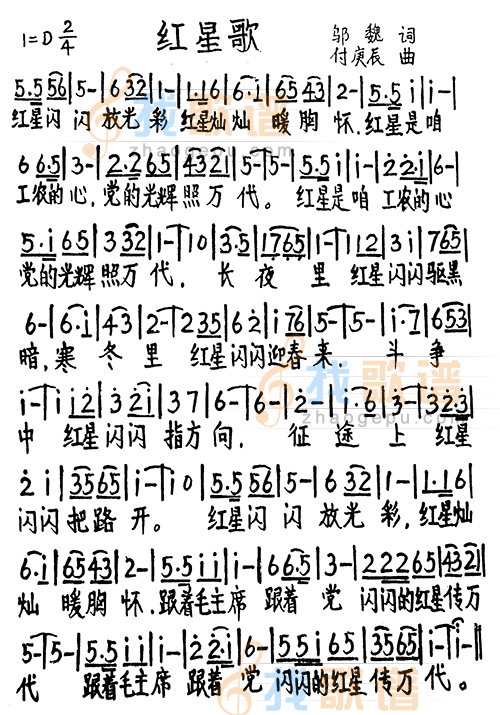 1=D 2/4 红星歌 邬魏 词
付庚辰 曲
5.5 56|5-|6 32|1-|1.16|6.i|65 43|2-|5.5 i|i-|
红星闪 闪 放光 彩 红星灿 灿 暖 胸 怀.红星是咱
6 6.5|3-|2.2 65|4321|5-|5-|5.5 i|i-|2.2.i|6-|
工农的心,党的光辉 照 万 代。 红星是咱 工农的心
5.i 65|3 32|1-|10|3.5|1765|1-|112|3i|765|
党的光辉 照万 代, 长 夜 里 红星闪闪驱黑
6-|6.i|43|2-|235|62|i76|5-|5-|i.7|653|
暗,寒 冬 里 红星闪闪迎春 来. 斗 争
i-|i i2|3 2i|37|6-|6-|2-|i.6|3-|3 23|
中 红星闪闪 指方向, 征 途 上 红星
2i|3565|i-|i0|5.556|5-|6 32|1-|1.16|
闪闪 把 路 开。 红星闪 闪 放光 彩,红星灿
6.i|6543|2-|5.5 i i|i-|66.5|3-|22265|4321|
灿 暖胸 怀.跟着毛主席 跟着 党 闪闪的红星传万
5-|5-|5.5 i i|i-|2 2.i|6-|55i 65|3565|i-|i-‖
代 跟着毛主席 跟着 党 闪闪的红星 传万 代。
我歌谱
zhaogepu.com